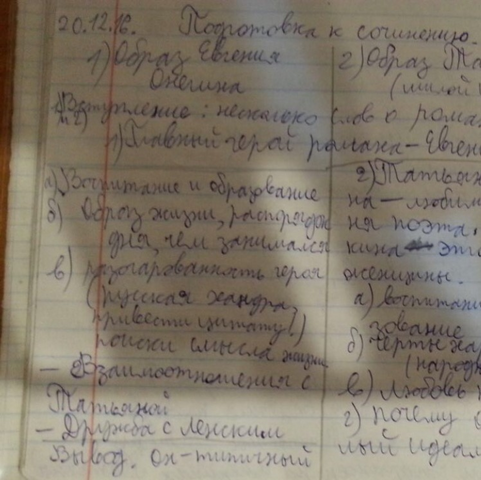 20.12.16. Подготовка к сочинению.
1) Образ Евгения
Онегина
2) Образ Та
(милой
Вступление: несколько слов о рома
1) Главный герой романа - Евген
а) Воспитание и образование
б) Образ жизни, распорядок
дня, чем занимался
в) разочарованность героя
(русская хандра,
привести цитату!)
поиски смысла жизни
- Взаимоотношения с
Татьяной
- Дружба с Ленским
Вывод. Он - типичный
2) Татьян
на - любим
ня поэта.
кина это
женщины.
а) воспитани
зование
б) черты ха
(народн
в) любовь
г) почему
лый идеал